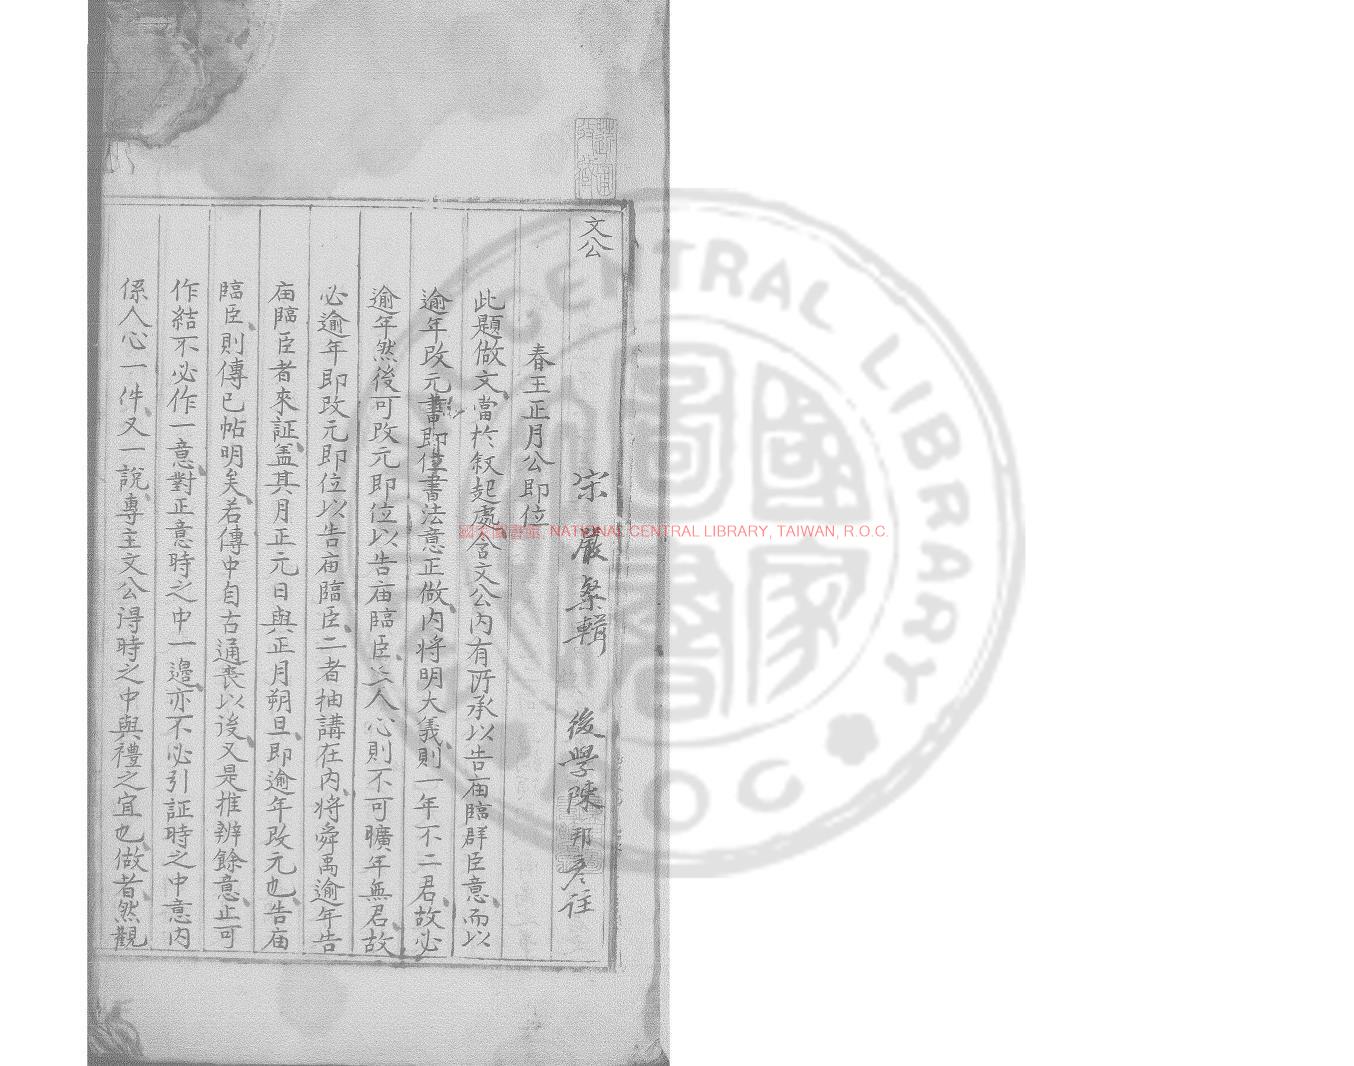 文公
宋 嚴粲輯 後學陳邦彥註
春王正月公即位
此題做文當於叙起處含文公內有所承以告庙臨群臣意而以
逾年改元書即位書法意正做內将明大義則一年不二君故必
逾年然後可改元即位以告庙臨臣亡人心則不可曠年無君故
必逾年即改元即位以告庙臨臣二者抽講在內将舜禹逾年告
庙臨臣者來証盖其月正元日與正月朔旦即逾年改元也告庙
臨臣則傳已帖明矣若傳中自古通喪以後又是推辨餘意止可
作結不必作一意對正意時之中一邉亦不必引証時之中意內
係人心一件又一說專主文公得時之中與禮之宜也做者然觀
國家圖書館 NATIONAL CENTRAL LIBRARY, TAIWAN, R.O.C.
CENTRAL LIBRARY
ROC